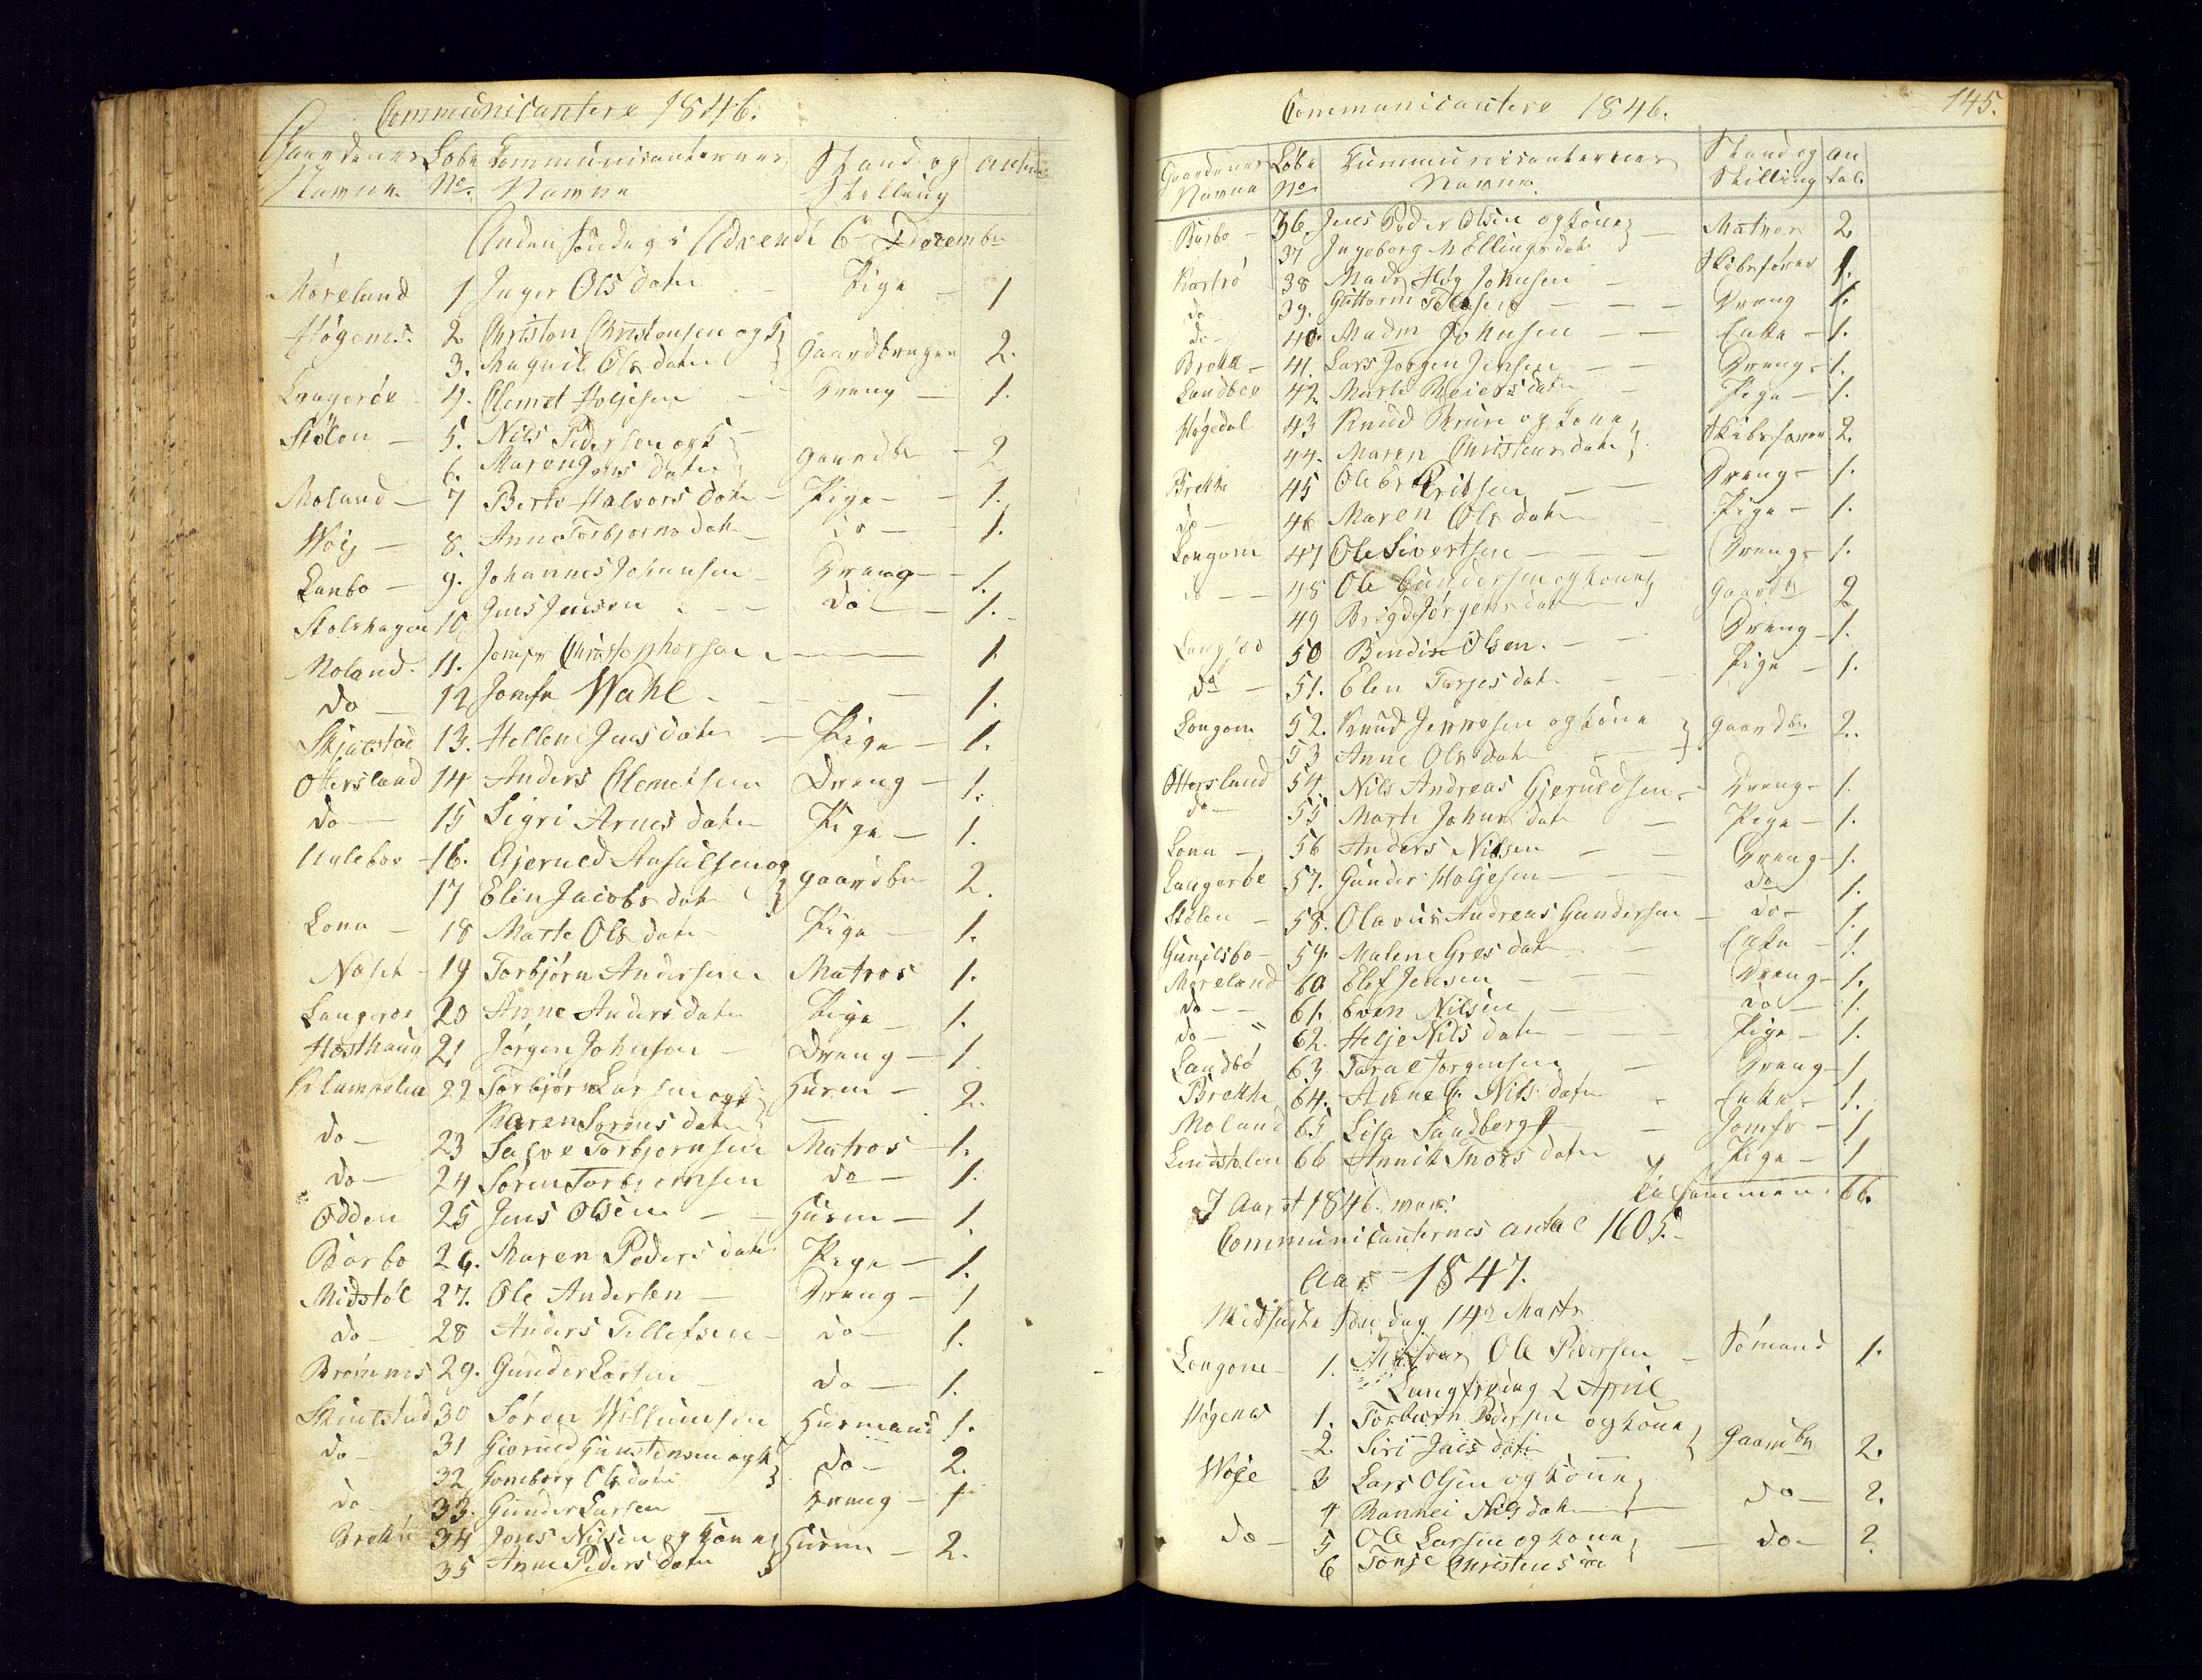 Communicantere 1846.
Gaardenes Løbe Communicanternes Stand og Antal
Navne. No. Navne Stelling
Anden Søndag i Advendt 6 Decembr
Moreland 1 Inger Olsdater Pige 1
Høgenes 2 Christen Christensen og K
3. Magnil Olsdater Gaardbruger 2.
Langeröe 4. Clemet Holjesen Dreng 1.
Stølen 5. Nils Pedersen og K
6. Maren Jensdater Gaardbr 2
Moland 7 Berte Halvorsdater Pige 1.
Woie 8. Anne Torbjornsdater do 1.
Lanbo 9. Johannes Johansen Dreng 1.
Stølshagen 10 Jens Jensen do 1.
Moland 11. Jomfr Christophersen 1
do 12 Jomfr Wahl 1.
Skjulstad 13. Hellene Jensdater Pige 1.
Ottersland 14 Anders Clemetsen Dreng 1.
do 15 Sigri Arnesdater Pige 1.
Ugleboe 16. Gjeruld Aasulsen og
17 Elin Jacobsdater gaardbr 2.
Lona 18 Marte Olsdater Pige 1.
Næset 19 Torbjörn Andersen Matros 1.
Langeröe 20 Anne Andersdater Pige 1.
Hesthaug 21 Jørgen Johnsen Dreng 1
Krampelien 22 Torbjørn Larsen og K Husm 2.
Karen Sørensdater
do 23 Salve Torbjornsen Matros 1.
do 24 Søren Torbjornsen do 1.
Odden 25 Jens Olsen Husm 1.
Barbo 26. Maren Pedersdater Pige 1.
Midstøl 27. Ole Andersen Dreng 1
do 28 Anders Tellefsen do 1.
Bromnes 29. Gunder Larsen do 1.
Skjulstad 30 Søren Willumsen Husmand 1.
do 31 Gieruld Gunstensen og K
32 Gonnborg Olsdater do 2.
do 33. Gunder Larsen Dreng 1
Brekke 34 Jens Nilsen og Kone Husm 2.
35 Anne Pedersdater
Communicantere 1846. 145.
Gaardenes Løbe Kummunicanternes Stand og An
Navne No Navne. Stilling tal.
Barbo 36. Jens Peder Olsen og Kone Matros 2
37 Ingeborg M Ellingsdater
Roströ 38 Mads Høg Johnsen Skibsfører 1.
do 39. Guttorm Tellefsen Dreng 1.
do 40. Madm Johnsen Enke 1.
Brekke 41. Lars Jørgen Jensen Dreng 1.
Landboe 42. Marte Reiersdater Pige 1.
Høgedal 43 Knud Bruun og Kone Skibsfører 2.
44. Maren Christensdater
Brekke 45 Ole Br Eriksen Dreng 1.
do 46 Maren Olsdater Pige 1.
Longom 47 Ole Sivertsen Dreng 1.
do 48 Ole Gundersen og Kone Gaardb 2
49 Brigde Jørgensdater
50 Bendix Olsen. Dreng 1.
do 51. Elen Tarjesdater Pige 1.
Longom 52. Knud Jensen og Kone Gaardbr 2.
53 Anne Olsdater
Ottersland 54. Nils Andreas Gjeruldsen Dreng 1.
do 55 Marte Johnsdater Pige 1.
Lona 56 Anders Nilsen Dreng 1.
Langeröe 57. Gunder Holjesen do 1.
Stølen 58. Olavus Andreas Gundersen do 1.
Gunilsbo 59. Malene Gresdater Enke 1.
Moreland 60 Elef Jensen Dreng 1.
do 61. Even Nilsen do 1.
do 62. Helje Nilsdater Pige 1.
Landbö 63 Taral Jorgensen Dreng 1
Brekke 64. Anne G. Nilsdater Enke 1.
Moland 65 Lisa Sandberg Jomfr 1
66 Annik Thorsdater Pige 1
Tilsammen 66.
I Aaret 1846 war:
Communicanternes antal 1605.
Aar 1847.
Midfaste Søndag 14de Marts
Longom 1. Ole Pedersen Sømand 1.
Langfredag 2 April
Høgenes 1. Torbiørn Pedersen og Kone
2. Siri Jaisdater Gaardbr 2.
Woje 3 Lars Olsen og Kone
4 Rannei Nilsdater do 2.
do 5 Ole Larsen og Kone do 2
6 Tonje Christensdr